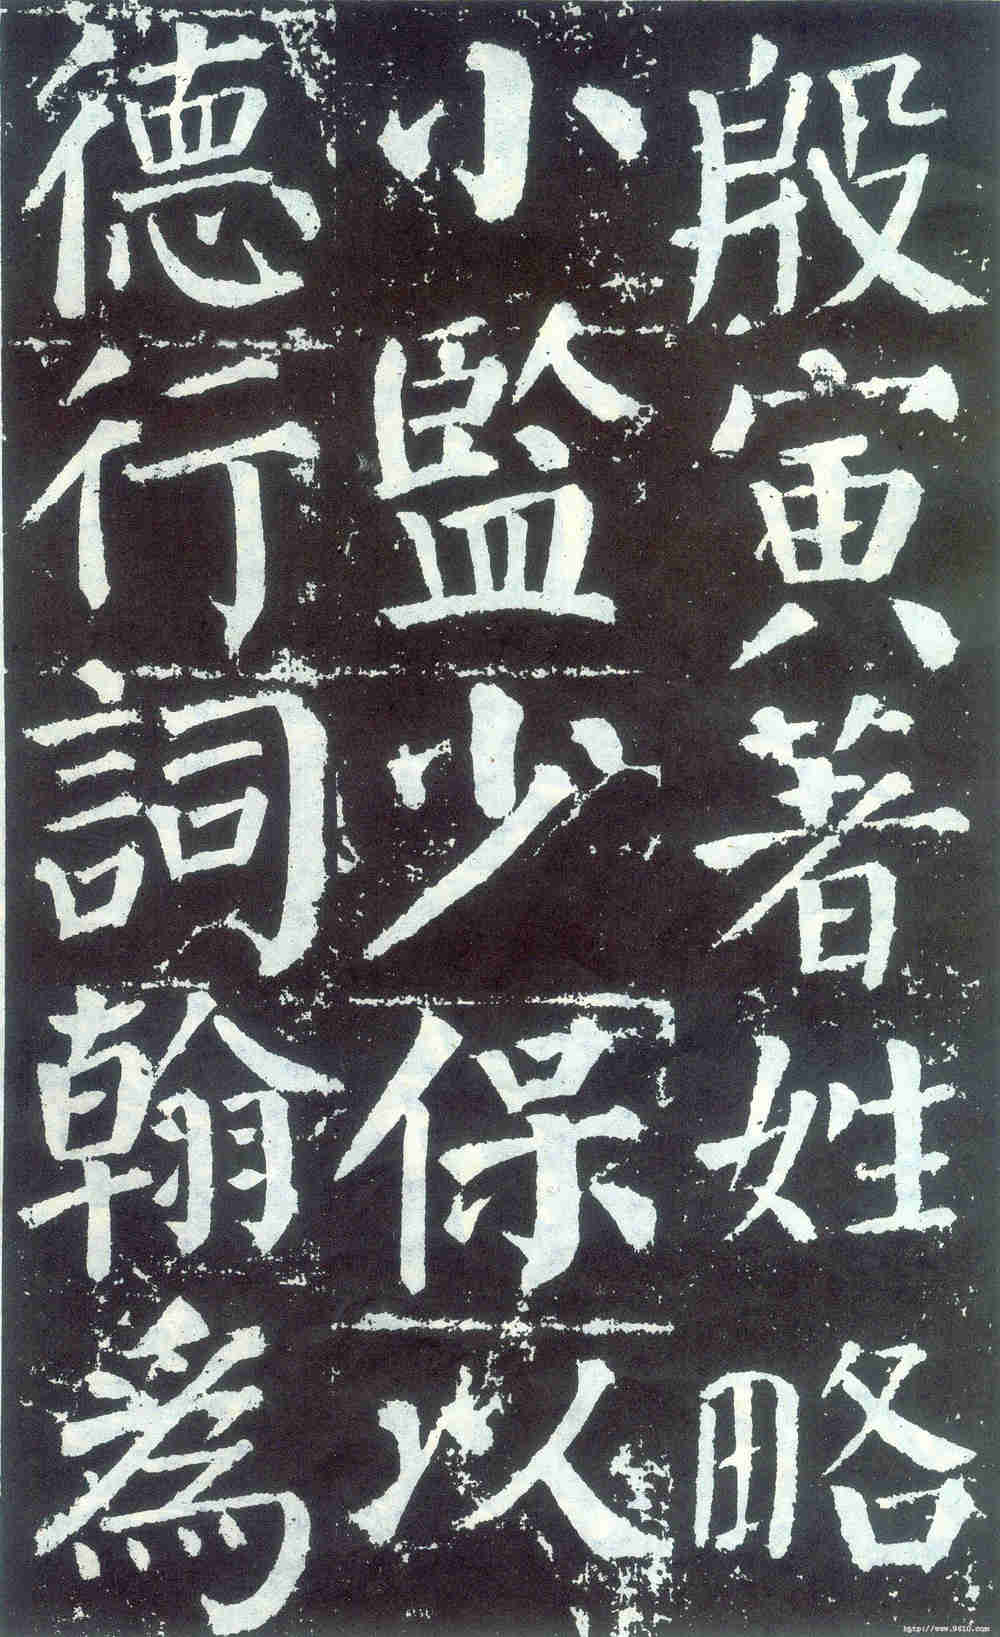 殷寅著姓略
小監少保以
德行詞翰為
http://www.9610.com